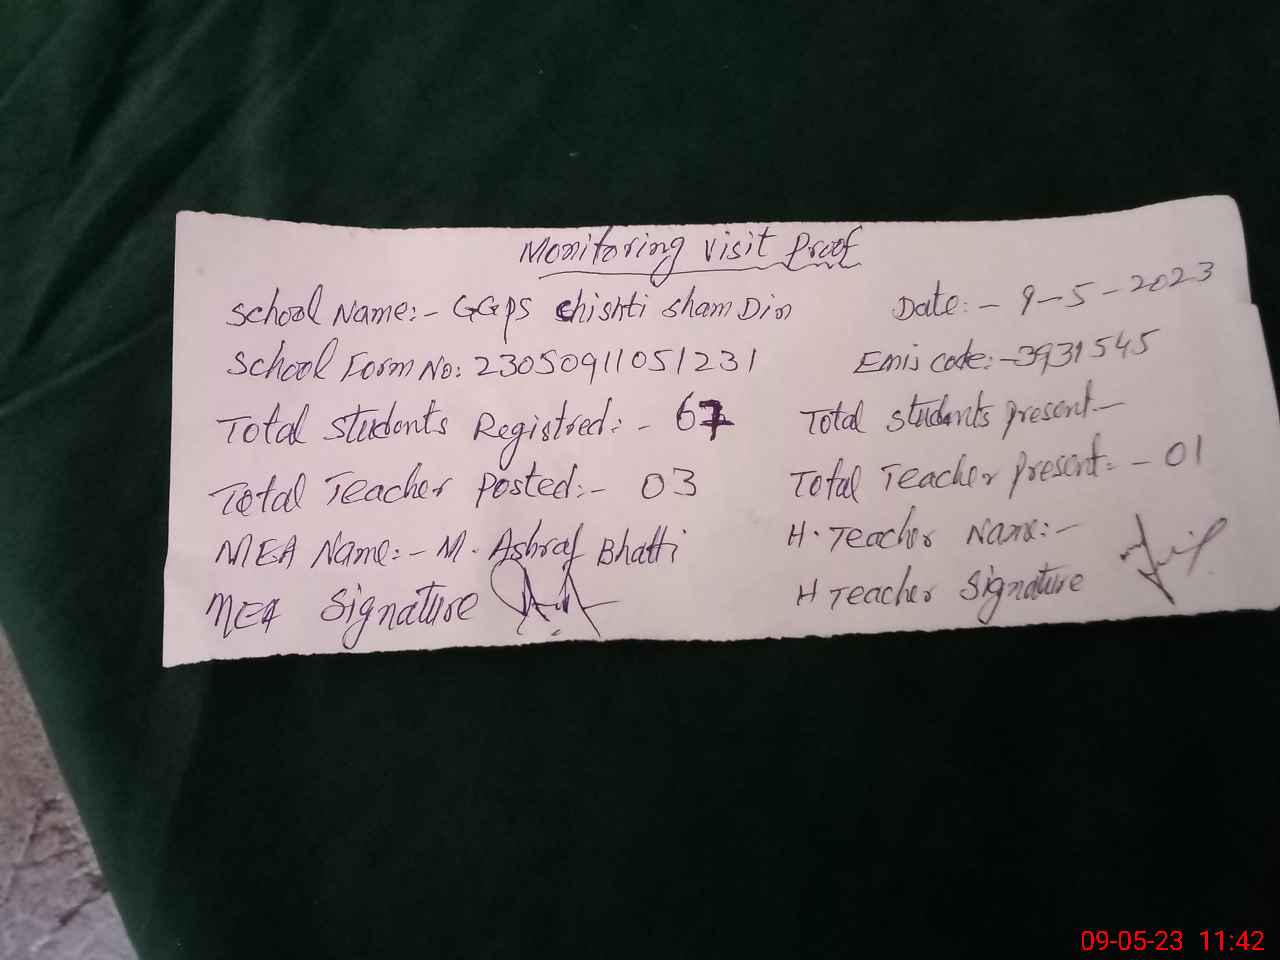 Monitoring visit Proof
School Name:- GGPS chishti sham Din Date:- 9-5-2023
School Form No: 23050911051231 Emis code:-3931545
Total Students Registred:- 67 Total Students present-
Total Teacher Posted:- 03 Total Teacher present:- 01
MEA Name:- M. Ashraf Bhatti H. Teacher Name:-
MEA Signature H Teacher Signature
09-05-23 11:42